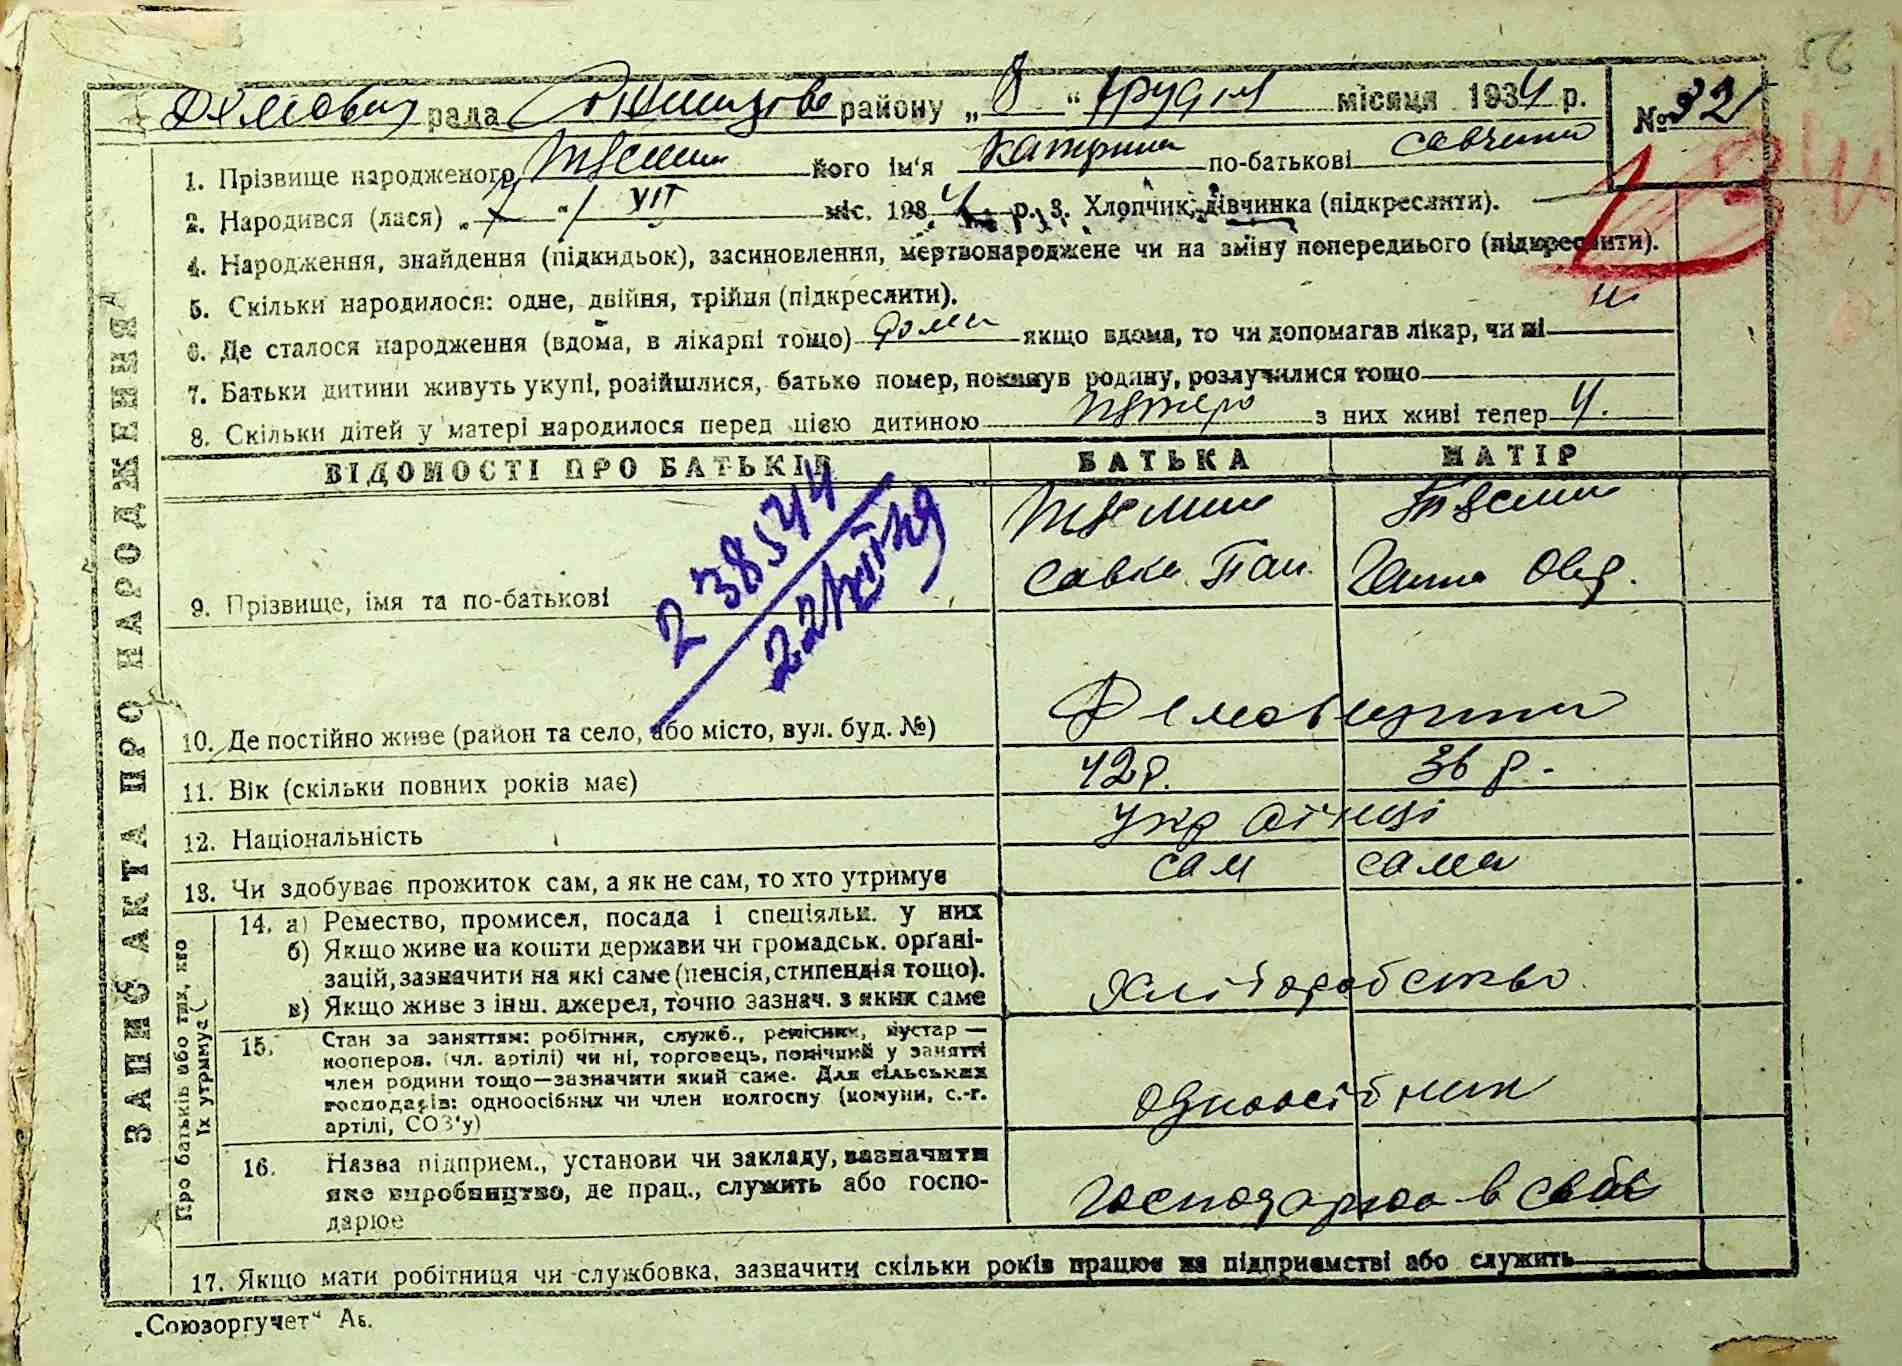 рада району „8“ грудня місяця 1934 р. № 32
ЗАПИС АКТА ПРО НАРОДЖЕННЯ
1. Прізвище народженого його ім'я Катрина по-батькові Савчина
2. Народився (лася) „7“ VII міс. 1934 р. 3. Хлопчик, дівчинка (підкреслити).
4. Народження, знайдення (підкидьок), засиновлення, мертвонароджене чи на зміну попереднього (підкреслити).
5. Скільки народилося: одне, двійня, трійня (підкреслити).
6. Де сталося народження (вдома, в лікарні тощо) дома якщо вдома, то чи допомагав лікар, чи ні
7. Батьки дитини живуть укупі, розійшлися, батько помер, покинув родину, розлучилися тощо
8. Скільки дітей у матері народилося перед цією дитиною пятеро з них живі тепер 4.
ВІДОМОСТІ ПРО БАТЬКІВ БАТЬКА МАТІР
238544
9. Прізвище, імя та по-батькові Савка Пан. Ганна Овд.
10. Де постійно живе (район та село, або місто, вул. буд. №)
11. Вік (скільки повних років має) 42 р. 36 р.
12. Національність Українці
13. Чи здобуває прожиток сам, а як не сам, то хто утримує сам сама
Про батьків або тих, хто їх утримує
14. а) Ремество, промисел, посада і спеціяльн. у них
б) Якщо живе на кошти держави чи громадськ. орґані-
зацій, зазначити на які саме (пенсія, стипендія тощо).
в) Якщо живе з інш. джерел, точно зазнач. з яких саме
Хліборобство
15. Стан за заняттям: робітник, служб., ремісник, кустар —
кооперов. (чл. артілі) чи ні, торговець, помічний у занятті
член родини тощо—зазначити який саме. Для сільських
господарів: одноосібник чи член колгоспу (комуни, с.-г.
артілі, СОЗ'у)
одноосібник
16. Назва підприєм., установи чи закладу, зазначити
яке виробництво, де прац., служить або госпо-
дарює
господарює в себе
17. Якщо мати робітниця чи службовка, зазначити скільки років працює на підприємстві або служить
„Союзоргучет“ Аб.